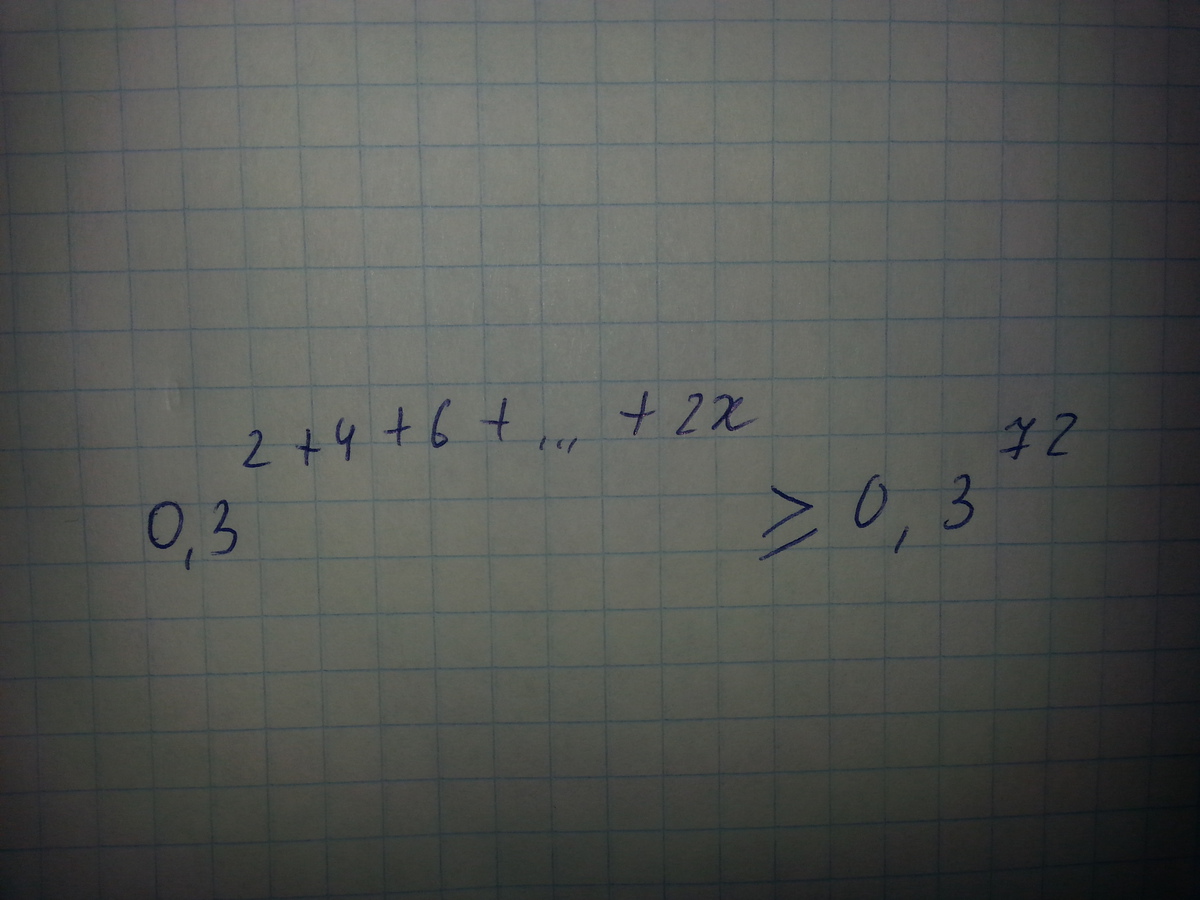 0,3^{2+4+6+...+2x} ≥ 0,3^{72}